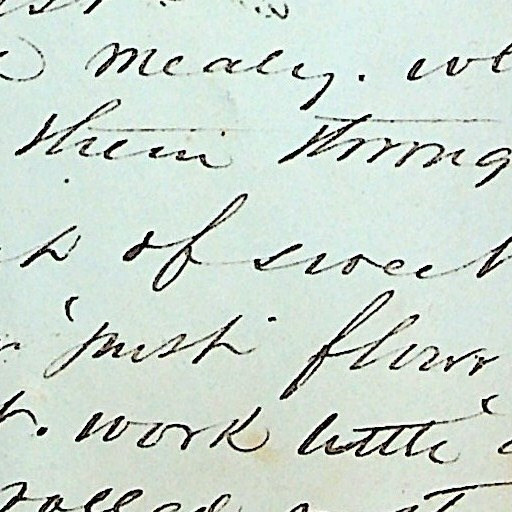 mealy. wh
them through
of sweet
just flour
work little
rolled